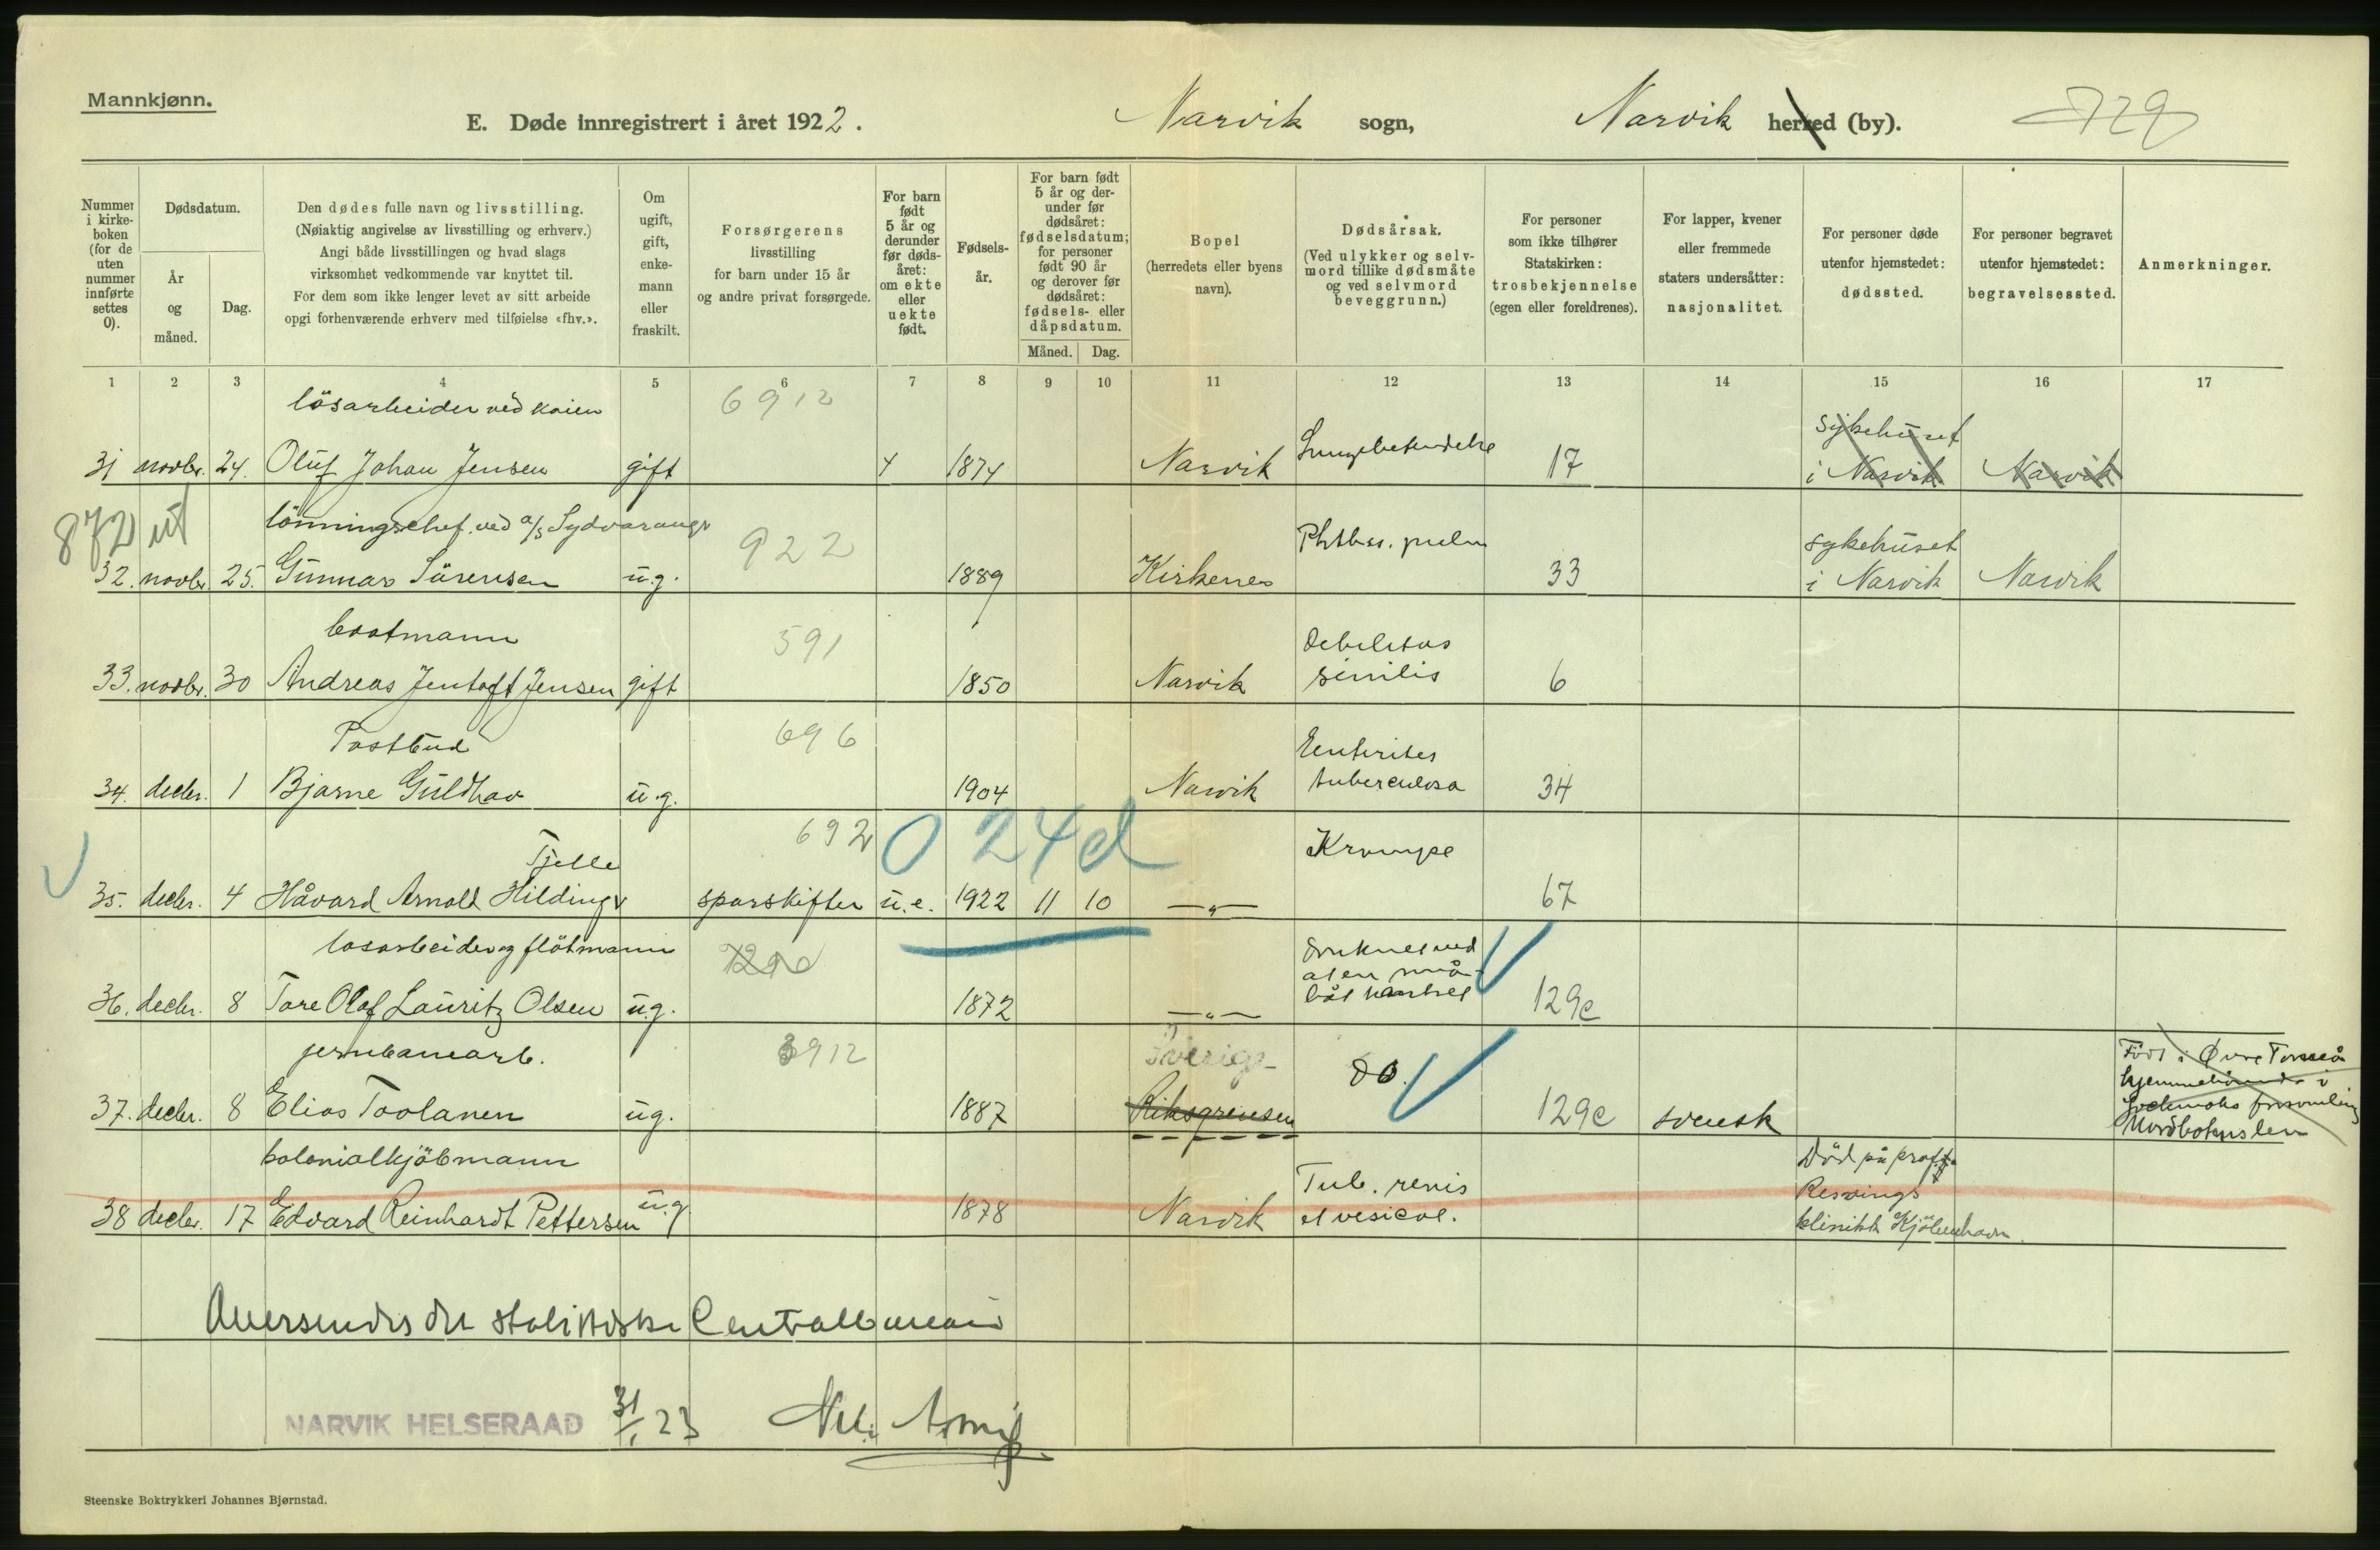 Mannkjønn.
E. Døde innregistrert i året 1922. Narvik sogn, Narvik herred (by). 729
Nummer i kirke-boken (for de uten nummer innførte settes 0).
Dødsdatum.
År og måned.
Dag.
Den dødes fulle navn og livsstilling.
(Nøiaktig angivelse av livsstilling og erhverv.)
Angi både livsstillingen og hvad slags
virksomhet vedkommende var knyttet til.
For dem som ikke lenger levet av sitt arbeide
opgi forhenværende erhverv med tilføielse «fhv.».
Om ugift, gift, enke-mann eller fraskilt.
Forsørgerens
livsstilling
for barn under 15 år
og andre privat forsørgede.
For barn født 5 år og derunder før døds-året: om ekte eller uekte født.
Fødsels-år.
For barn født 5 år og der-under før dødsåret: fødselsdatum; for personer født 90 år og derover før dødsåret: fødsels- eller dåpsdatum.
Måned. Dag.
Bopel
(herredets eller byens
navn).
Dødsårsak.
(Ved ulykker og selv-
mord tillike dødsmåte
og ved selvmord
beveggrunn.)
For personer
som ikke tilhører
Statskirken:
trosbekjennelse
(egen eller foreldrenes).
For lapper, kvener
eller fremmede
staters undersåtter:
nasjonalitet.
For personer døde
utenfor hjemstedet:
dødssted.
For personer begravet
utenfor hjemstedet:
begravelsessted.
Anmerkninger.
1 2 3 4 5 6 7 8 9 10 11 12 13 14 15 16 17
lösarbeider ved kaien 6912
31 novbr. 24. Oluf Johan Jensen gift 4 1874 Narvik Lungebetendelse 17 Sykehuset i Narvik Narvik
872 ut
lönningschef. ved a/s Sydvaranger 922
32. novbr 25. Gunnar Sürensen u.g. 1889 Kirkenes Phthis. pulm 33 sykehuset i Narvik Narvik
bootmann 591
33. novbr. 30 Andreas Jentoft Jensen gift 1850 Narvik Debilitas sinilis 6
Postbud 696
34. decbr. 1 Bjarne Guldhav u.g. 1904 Narvik Eenterites tuberculosa 34
Tjelle 692 0 24d
35. decbr. 4 Håvard Arnold Hilding sporskifter u.e. 1922 11 10 —„— Krampe 67
losarbeider og flötmann
36. decbr. 8 Tore Olaf Lauritz Olsen u.g. 1872 —„— 129c
jernbanearb. 6912 Sverige
37. decbr. 8 Elias Toolanen ug. 1887 Riksgrensen do. 129c svensk
Född i Øvre
kolonialkjöbmann
38 decbr. 17 Edvard Reinhardt Pettersen u.g 1878 Narvik Tub. renis et vesicae.
Död på
klinikk Kjöbenhavn.
Oversendes det statistiske Centralbureau
NARVIK HELSERAAD 31/1 23
Steenske Boktrykkeri Johannes Bjørnstad.